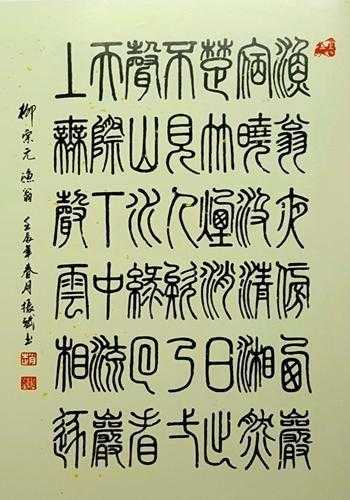 漁翁夜傍西巖
宿曉汲清湘然
楚竹煙消日出
不見人欸乃弌
聲山水綠回看
天際下中流巖
上無聲雲相逐
柳宗元 漁翁 壬辰年春月振斌书